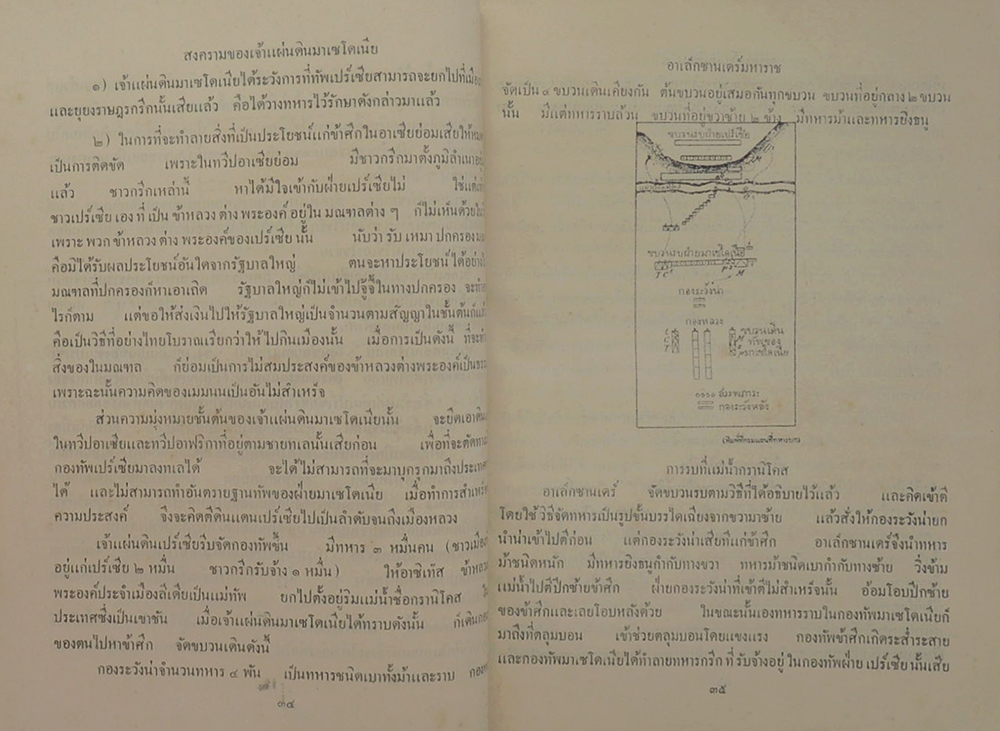 สงครามของเจ้าแผ่นดินมาเซโดเนีย
๑) เจ้าแผ่นดินมาเซโดเนียได้ระวังการที่ทัพเปร์เซียสามารถจะยกไปที่เมือง
และยุยงราษฎรกรีกนั้นเสียแล้ว คือได้วางทหารไว้รักษาดังกล่าวมาแล้ว
๒) ในการที่จะทำลายสิ่งที่เป็นประโยชน์แก่ข้าศึกในอาเซียย่อมเสียให้หมด
เป็นการติดขัด เพราะในทวีปอาเซียย่อม มีชาวกรีกมาตั้งภูมิลำเนาอยู่
แล้ว ชาวกรีกเหล่านี้ หาได้มีใจเข้ากับฝ่ายเปร์เซียไม่ ใช่แต่
ชาวเปร์เซีย เอง ที่ เป็น ข้าหลวง ต่าง พระองค์ อยู่ ใน มณฑลต่าง ๆ ก็ไม่เห็นด้วย
เพราะ พวก ข้าหลวง ต่าง พระองค์ของเปร์เซีย นั้น นับว่า รับ เหมา ปกครอง
คือมิได้รับผลประโยชน์อันใดจากรัฐบาลใหญ่ ตนจะหาประโยชน์ได้อย่าง
มณฑลที่ปกครองก็หาเอาเถิด รัฐบาลใหญ่ก็ไม่เข้าไปจู้จี้ในทางปกครอง จะ
ไรก็ตาม แต่ขอให้ส่งเงินไปให้รัฐบาลใหญ่เป็นจำนวนตามสัญญาในชั้นต้นก็
คือเป็นวิธีที่อย่างไทยโบราณเรียกว่าให้ไปกินเมืองนั้น เมื่อการเป็นดังนี้ ที่จะ
สิ่งของในมณฑล ก็ย่อมเป็นการไม่สมประสงค์ของข้าหลวงต่างพระองค์เป็น
เพราะฉะนั้นความคิดของเมมนนเป็นอันไม่สำเหร็จ
ส่วนความมุ่งหมายชั้นต้นของเจ้าแผ่นดินมาเซโดเนียนั้น จะยึดเอา
ในทวีปอาเซียและทวีปอาฟริกาที่อยู่ตามชายทเลนั้นเสียก่อน เพื่อที่จะตัดทาง
กองทัพเปร์เซียมาลงทเลได้ จะได้ไม่สามารถที่จะมาบุกรุกมาถึงประเทศ
ได้ และไม่สามารถทำอันตรายฐานทัพของฝ่ายมาเซโดเนีย เมื่อทำการสำเหร็จ
ความประสงค์ จึงจะคิดตีดินแดนเปร์เซียไปเป็นลำดับจนถึงเมืองหลวง
เจ้าแผ่นดินเปร์เซียรีบจัดกองทัพขึ้น มีทหาร ๓ หมื่นคน (ชาวเมือง
อยู่แก่เปร์เซีย ๒ หมื่น ชาวกรีกรับจ้าง ๑ หมื่น) ให้อาซิเทัส ข้าหลวง
พระองค์ประจำเมืองลีเดียเป็นแม่ทัพ ยกไปตั้งอยู่ริมแม่น้ำชื่อกรานิโคส ใน
ประเทศซึ่งเป็นเขาชัน เมื่อเจ้าแผ่นดินมาเซโดเนียได้ทราบดังนั้น ก็เดินกอง
ของตนไปหาข้าศึก จัดขบวนเดินดังนี้
กองระวังน่าจำนวนทหาร ๔ พัน เป็นทหารชนิดเบาทั้งม้าและราบ
๓๔
อาเล็กซานเดร์มหาราช
จัดเป็น ๔ ขบวนเดินเคียงกัน ต้นขบวนอยู่เสมอกันทุกขบวน ขบวนที่อยู่กลาง ๒ ขบวน
นั้น มีแต่ทหารราบล้วน ขบวนที่อยู่ขวาซ้าย ๒ ข้าง มีทหารม้าและทหารยิงธนู
ขบวนรบฝ่ายเปร์เซีย
ขบวนรบฝ่ายมาเซโดเนีย
T C
P M
กองระวังน่า
กองหลวง
ขบวนเดิน
ทัพของ
มาเซโดเนีย
L
C
T
สมพภาระ
กองระวังหลัง
การรบที่แม่น้ำกรานิโคส
อาเล็กซานเดร์ จัดขบวนรบตามวิธีที่ได้อธิบายไว้แล้ว และคิดเข้าตี
โดยใช้ วิธีจัดทหารเป็นรูปขั้นบรรไดเฉียงจากขวามาซ้าย แล้วสั่งให้กองระวังน่ายก
นำน่าเข้าไปตีก่อน แต่กองระวังน่าเสียทีแก่ข้าศึก อาเล็กซานเดร์จึงนำทหาร
ม้าชนิดหนัก มีทหารยิงธนูกำกับทางขวา ทหารม้าชนิดเบากำกับทางซ้าย วิ่งข้าม
แม่น้ำไปตีปีกซ้ายข้าศึก ฝ่ายกองระวังน่าที่เข้าตีไม่สำเหร็จนั้น อ้อมโอบปีกซ้าย
ของข้าศึกและเลยโอบหลังด้วย ในขณะนั้นเองทหารราบในกองทัพมาเซโดเนียก็
มาถึงที่ตลุมบอน เข้าช่วยตลุมบอนโดยแขงแรง กองทัพข้าศึกเกิดระส่ำระสาย
และกองทัพมาเซโดเนียได้ทำลายทหารกรีก ที่ รับจ้างอยู่ ในกองทัพฝ่าย เปร์เซีย นั้นเสีย
๓๕